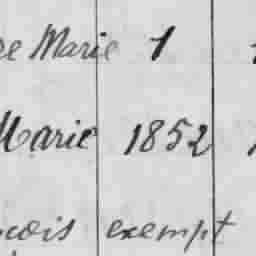 de Marie 1
Marie 1852
exempt